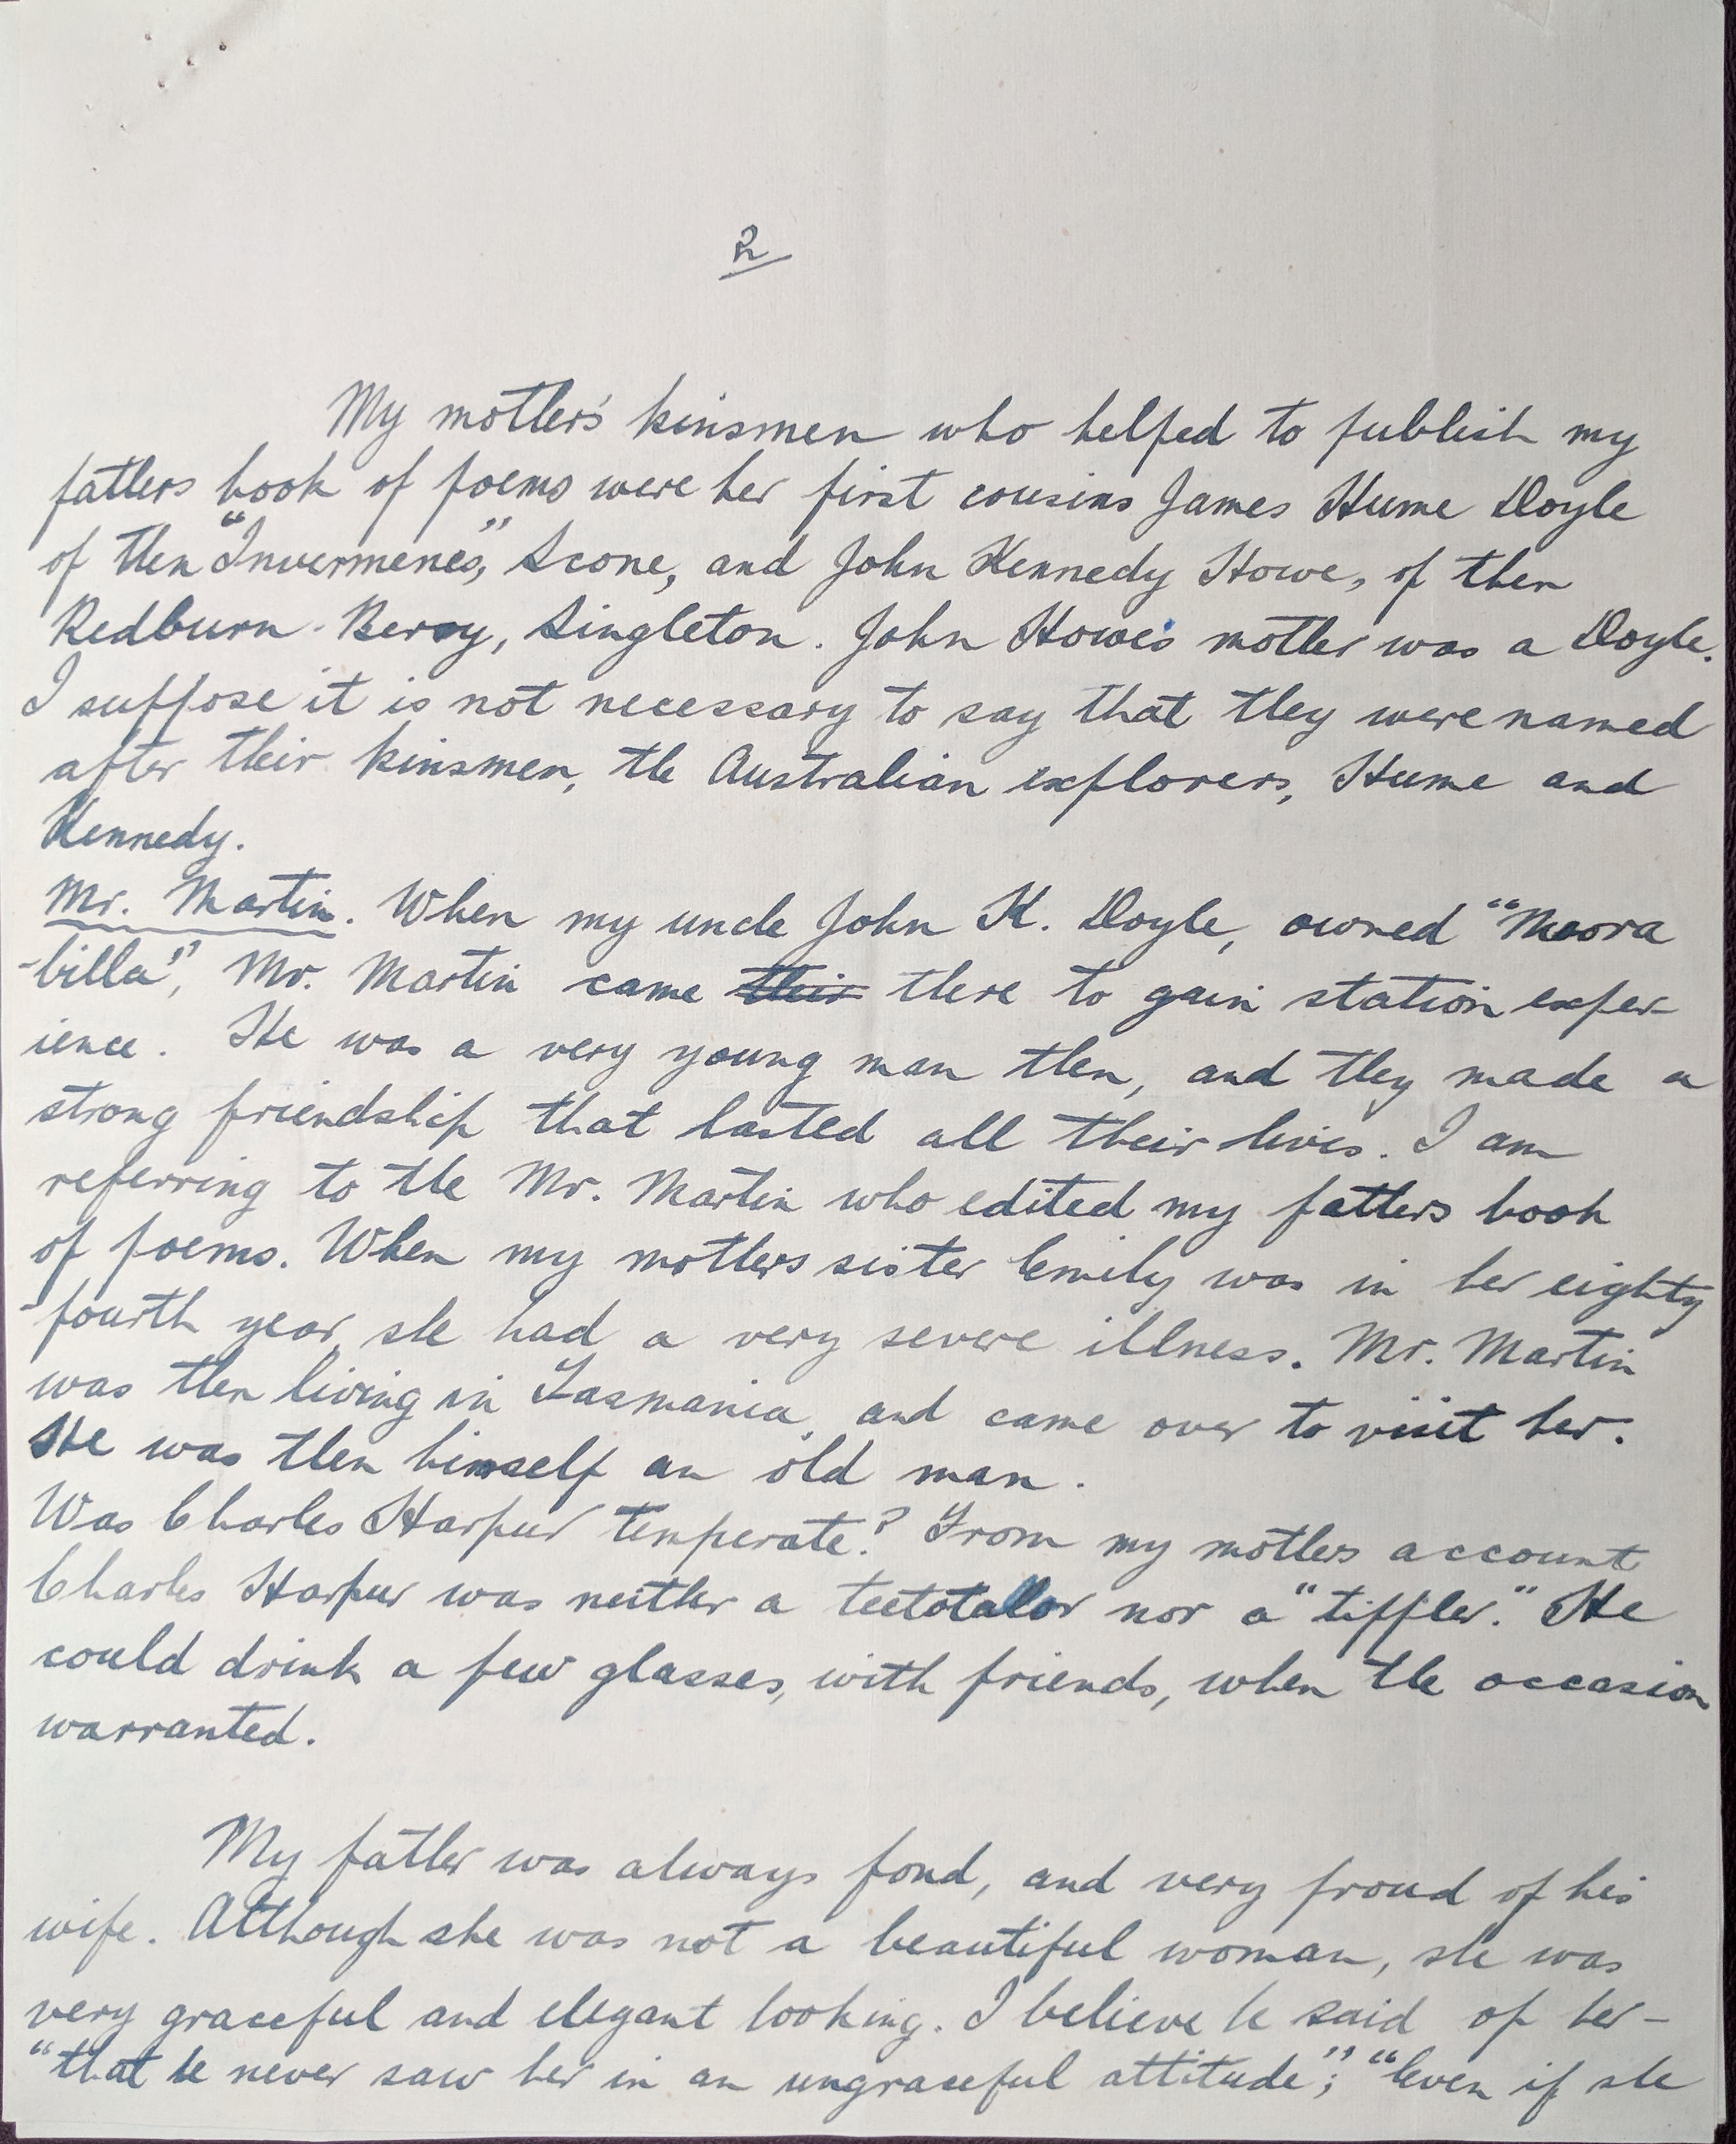 2
My mother's kinsmen who helped to publish my
fathers book of poems were her first cousins James Hume Doyle
of then "Invermenes", Scone, and John Kennedy Howe, of then
Redburn-Beroy, Singleton. John Howe's mother was a Doyle.
I suppose it is not necessary to say that they were named
after their kinsmen, the Australian explorers, Hume and
Kennedy.
Mr. Martin. When my uncle John K. Doyle, owned "Moora
-billa", Mr. Martin came their there to gain station exper-
ience. He was a very young man then, and they made a
strong friendship that lasted all their lives. I am
referring to the Mr. Martin who edited my fathers book
of poems. When my mothers sister Emily was in her eighty
-fourth year, she had a very severe illness. Mr. Martin
was then living in Tasmania, and came over to visit her.
He was then himself an old man.
Was Charles Harpur temperate? From my mothers account
Charles Harpur was neither a teetotallor nor a "tippler." He
could drink a few glasses, with friends, when the occasion
warranted.
My father was always fond, and very proud of his
wife. Although she was not a beautiful woman, she was
very graceful and elegant looking. I believe he said of her-
"that he never saw her in an ungraceful attitude"; "even if she